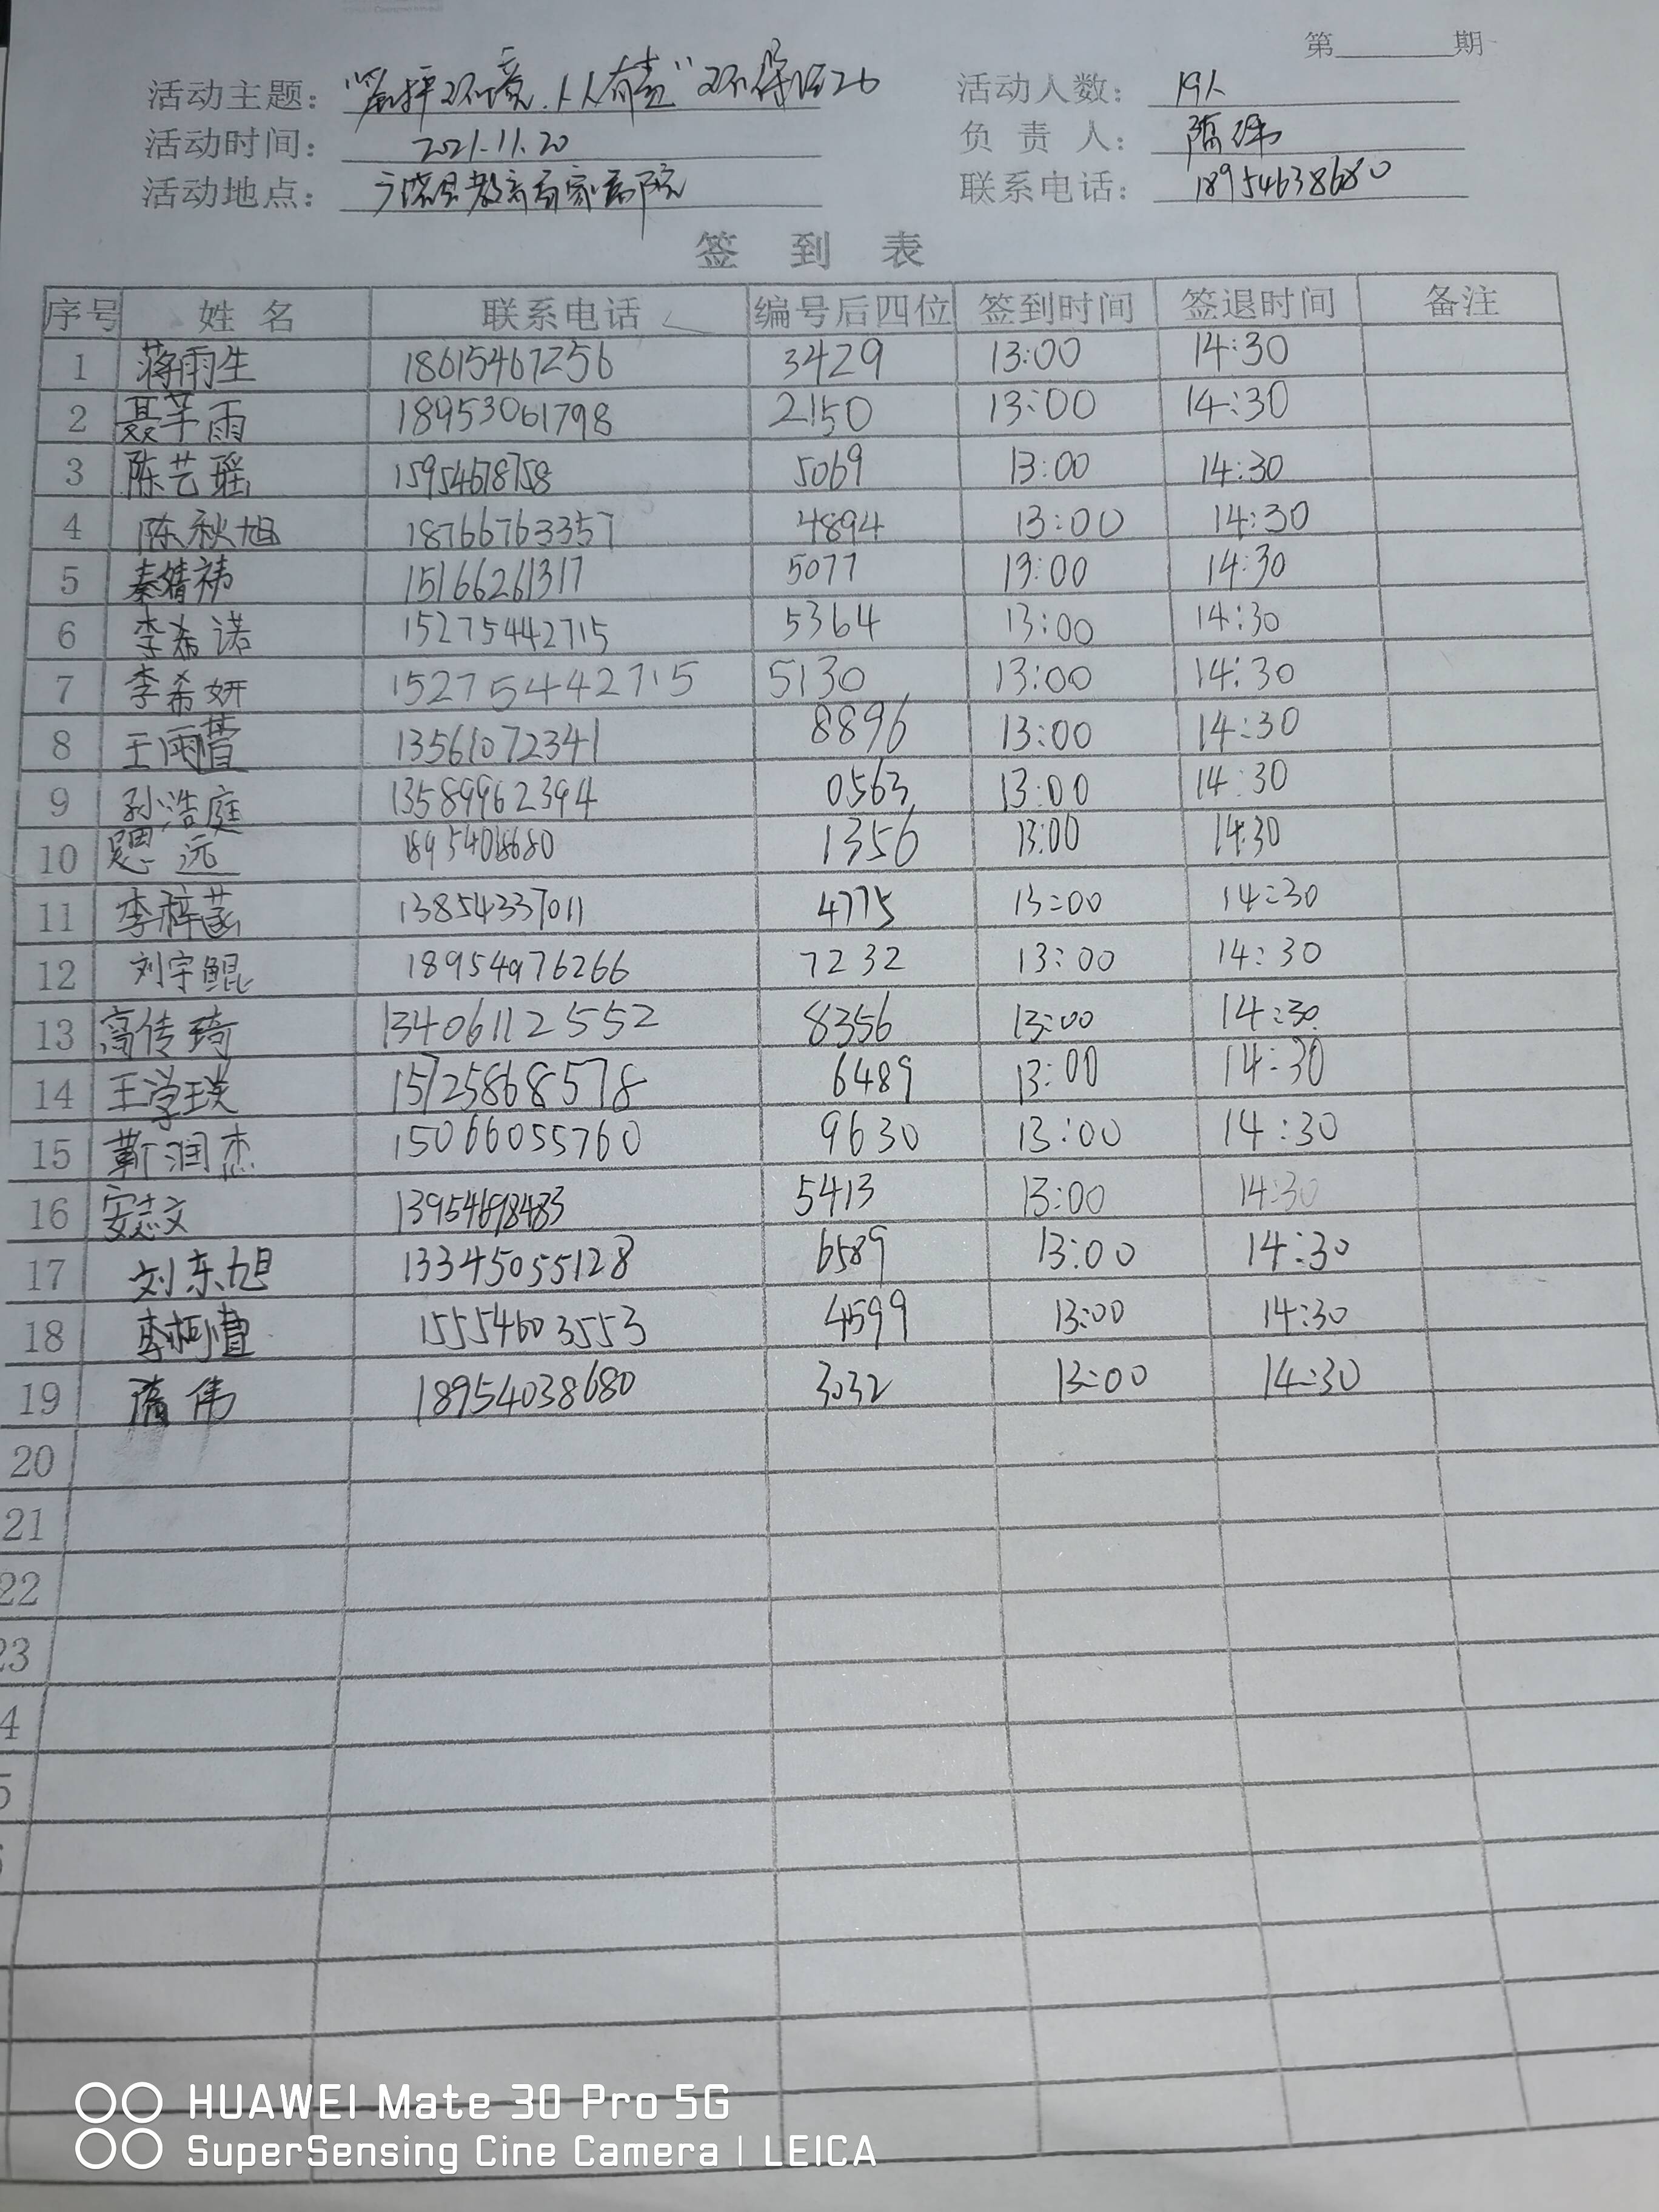 第 期
活动主题： 环境.人人有责"环保活动
活动人数： 19人
活动时间： 2021.11.20
负 责 人：
活动地点： 广饶县教育局家属院
联系电话： 18954638680
签 到 表
序号 姓 名 联系电话 编号后四位 签到时间 签退时间 备注
1 蒋雨生 18615467256 3429 13:00 14:30
2 聂芊雨 18953061798 2150 13:00 14:30
3 陈艺瑶 15954678758 5069 13:00 14:30
4 陈秋旭 18766763357 4894 13:00 14:30
5 秦婧祎 15166261317 5077 13:00 14:30
6 李希诺 15275442715 5364 13:00 14:30
7 李希妍 15275442715 5130 13:00 14:30
8 王雨萱 13561072341 8896 13:00 14:30
9 孙浩庭 13589962394 0563 13:00 14:30
10 远 1356 13:00 14:30
11 李梓菡 13854337011 4775 13:00 14:30
12 刘宇鲲 18954976266 7232 13:00 14:30
13 高传琦 13406112552 8356 13:00 14:30
14 王学瑛 15725868578 6489 13:00 14:30
15 靳润杰 15066055760 9630 13:00 14:30
16 安志文 13954698483 5413 13:00 14:30
17 刘东旭 13345055128 6589 13:00 14:30
18 李柯萱 15554603553 4599 13:00 14:30
19 隋伟 18954038680 3032 13:00 14:30
20
21
22
23
4
5
HUAWEI Mate 30 Pro 5G
SuperSensing Cine Camera | LEICA